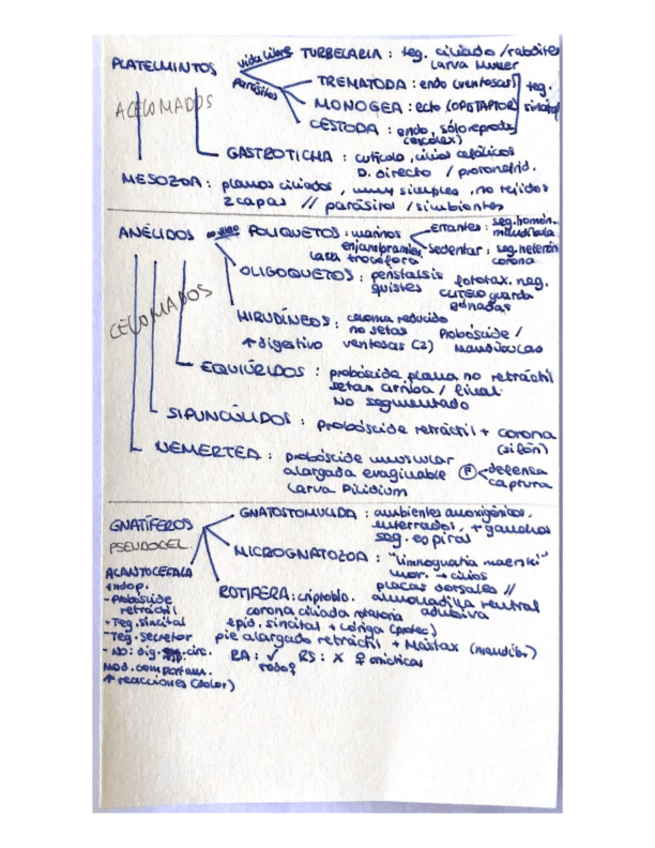 PLATELMINTOS
vida libre
TURBELARIA : teg. ciliado / rabdites
Larva Muller
parásitos
TREMATODA : endo (ventosas)
MONOGEA : ecto (OPISTAPTOR)
CESTODA : endo, sólo reprod.
(escólex)
teg.
sincital
ACELOMADOS
GASTROTICHA : cutícula, cilios cefálicos
D. directo / protonefrid.
MESOZOA : planos ciliados, muy simples, no tejidos
2 capas // parásitos / simbiontes
ANÉLIDOS
POLIQUETOS : marinos
enjambramien.
larva trocófora
errantes : seg. homón.
mandíbula
sedentar : seg. heterón
corona
OLIGOQUETOS : peristalsis fototax. neg.
quistes CLITELO guarda
gónadas
CELOMADOS
HIRUDÍNEOS : celoma reducido
no setas Probóscide /
↑ digestivo ventosas (2) Mandíbulas
EQUIÚRIDOS : probóscide plana no retráctil
setas arriba / final
No segmentado
SIPUNCÚLIDOS : probóscide retráctil + corona
(sifón)
NEMERTEA : probóscide muscular
alargada evaginable (F) defensa
captura
Larva Pilidium
GNATÍFEROS
PSEUDOCEL.
GNATOSTOMULIDA : ambientes anoxigénicos.
enterrados, + ganchos
seg. espiral
MICROGNATOZOA : "limnognathia maerski"
mov. → cilios
placas dorsales //
almohadilla ventral
adhesiva
ACANTOCEFALA
endop.
- Probóscide
retráctil
- Teg. sincital
- Teg. secretor
- No : dig. circ.
Mod. comportam.
↑ reacciones (dolor)
ROTIFERA : criptobio.
corona ciliada rotatoria
epid. sincital + loriga (protec)
pie alargado retráctil + Mástax (mandíb.)
RA : ✓ RS : X ♀ amícticas
todo ♀